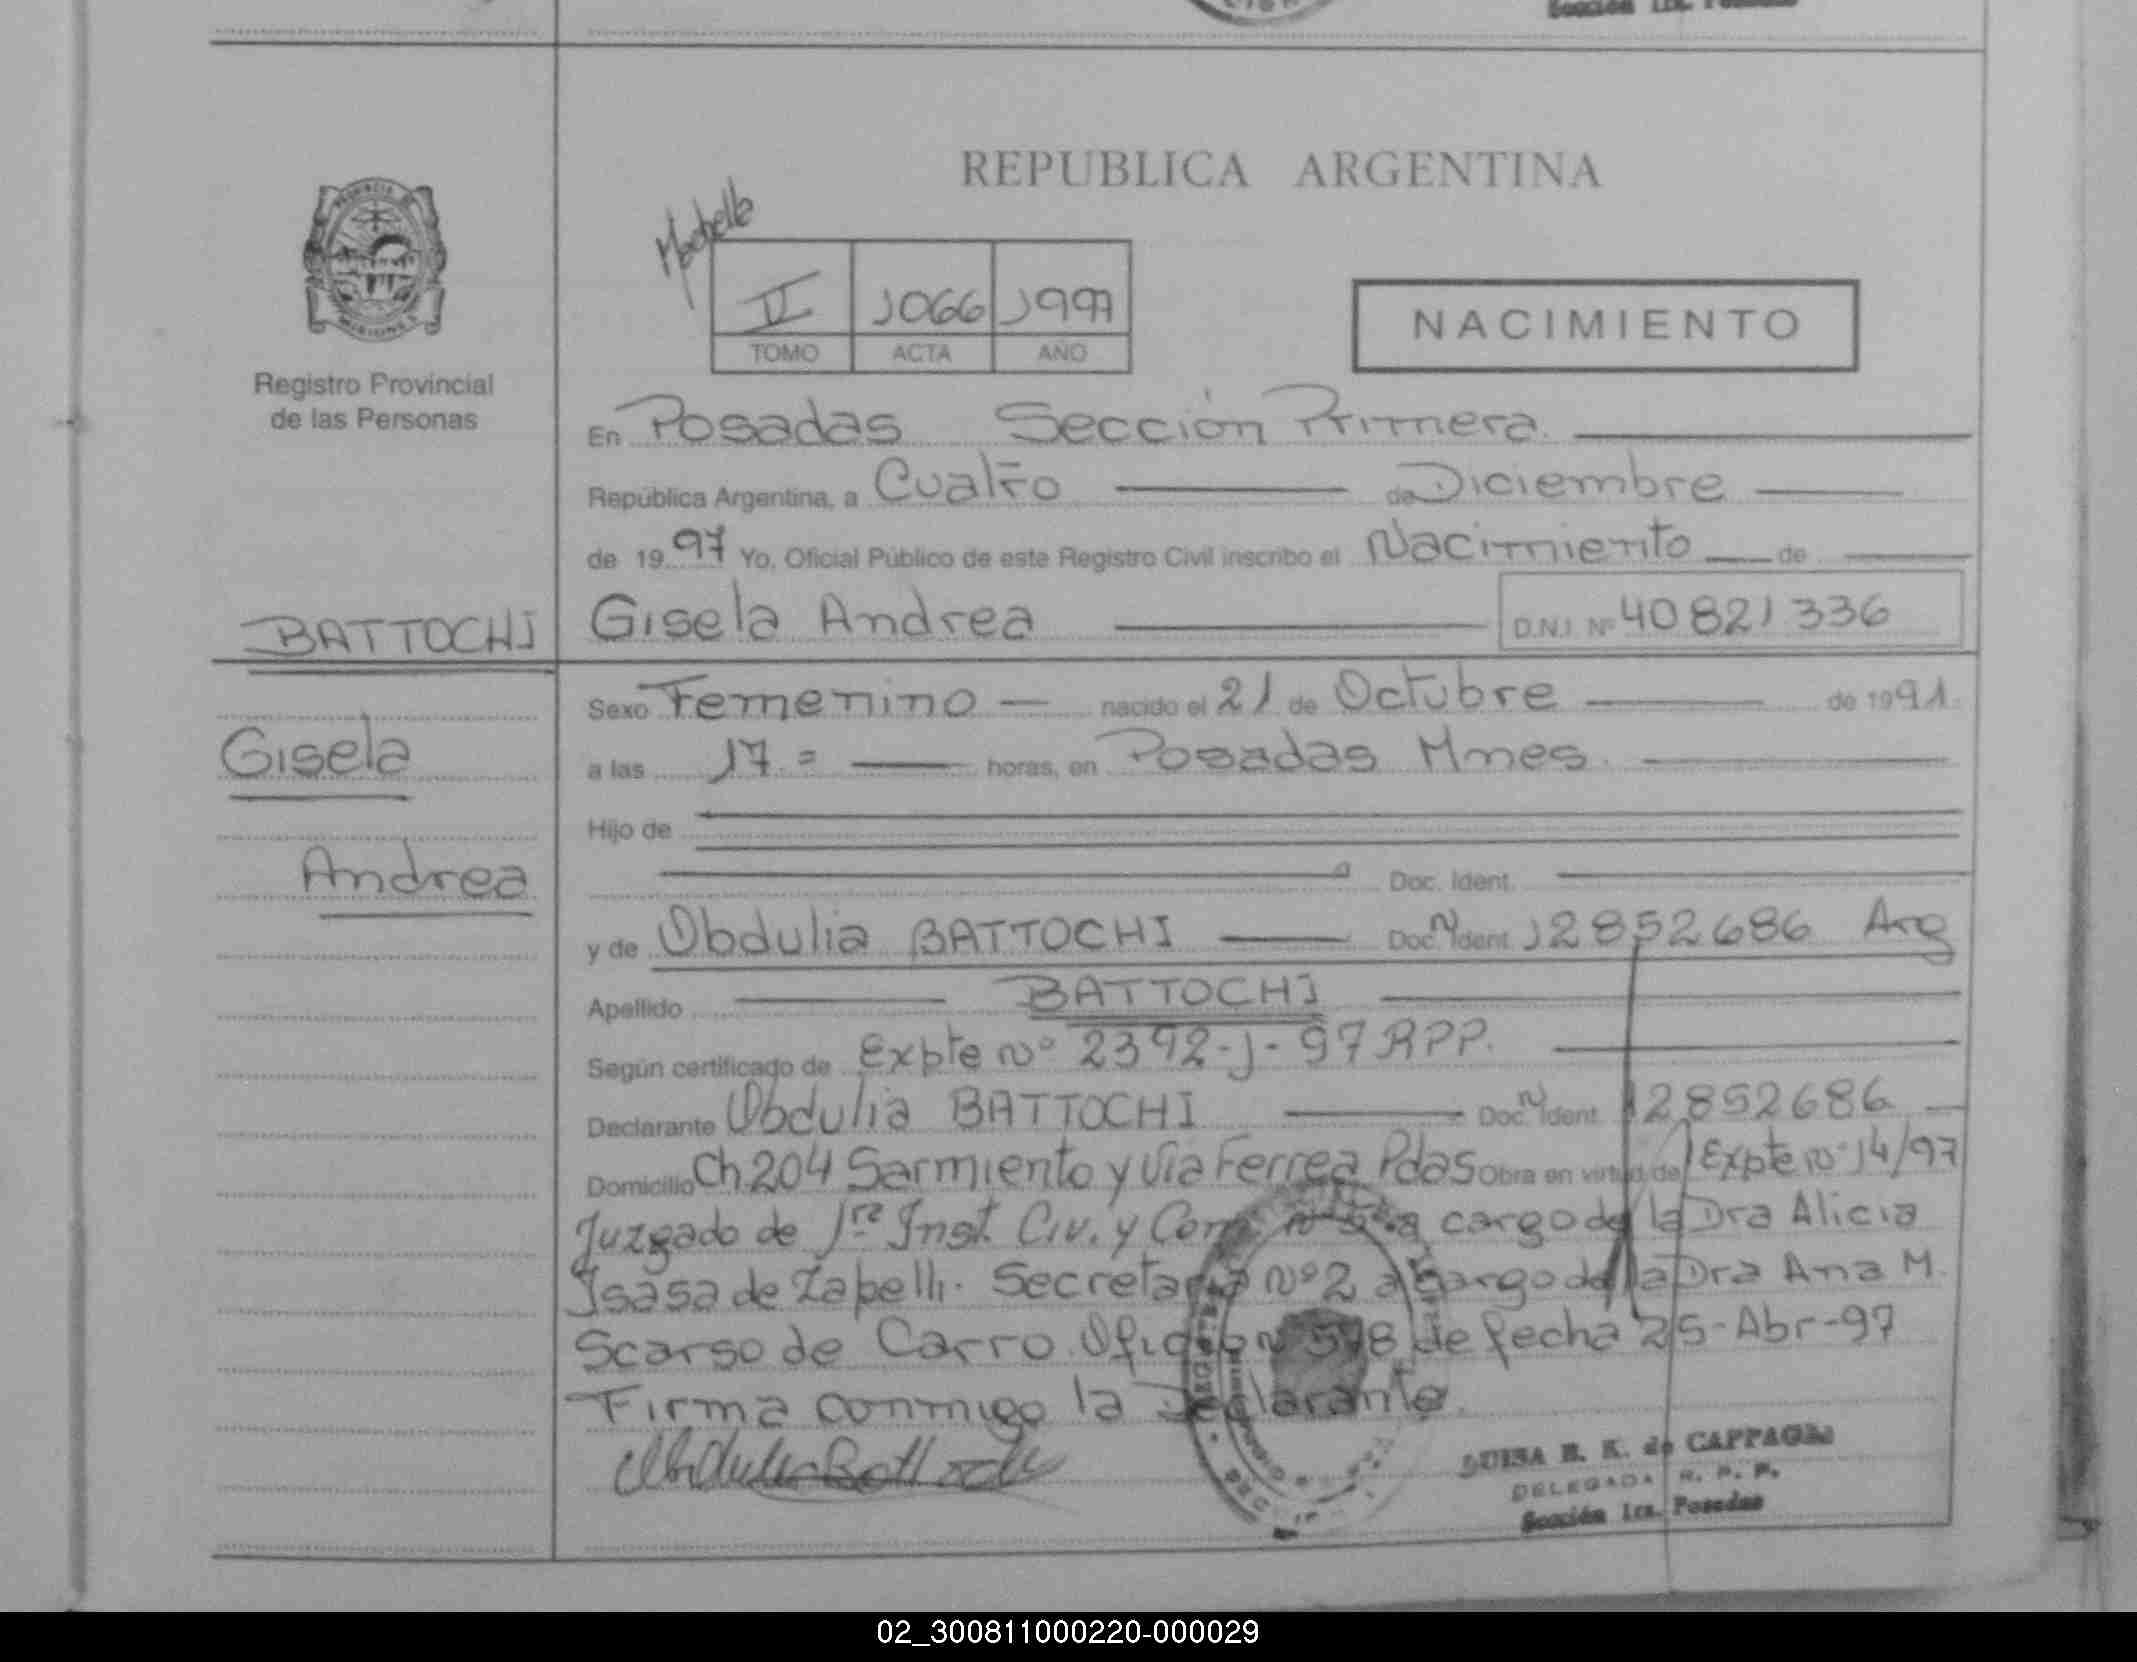 Sección 1ra. Posadas
REPUBLICA ARGENTINA
PROVINCIA DE
MISIONES
Registro Provincial
de las Personas
II 1066 1997
TOMO ACTA AÑO
NACIMIENTO
En Posadas Sección Primera.
República Argentina, a Cuatro de Diciembre
de 1997 Yo, Oficial Público de este Registro Civil inscribo el Nacimiento de
BATTOCHI Gisela Andrea D.N.I. Nº 40821336
Sexo Femenino nacido el 21 de Octubre de 1991.
Gisela
a las 17.= horas, en Posadas Mnes.
Hijo de
Andrea
Doc. Ident.
y de Obdulia BATTOCHI Doc. N Ident. 12852686 Arg
Apellido BATTOCHI
Según certificado de Expte Nº 2392-J-97 RPP.
Declarante Obdulia BATTOCHI Doc. N Ident. 12852686
Domicilio Ch.204 Sarmiento y Via Ferrea Pdas Obra en virtud de Expte Nº 14/97
Juzgado de 1ra Inst. Civ. y Com. a cargo de la Dra Alicia
Isasa de Zapelli. Secretaria Nº 2 a cargo de la Dra Ana M.
Scarso de Carro. Oficio N de fecha 25-Abr-97
Firma conmigo la Declarante.
Obdulia Battochi
LUISA R. K. de CAPPAGLI
DELEGADA R. P. P.
Sección 1ra. Posadas
02_300811000220-000029